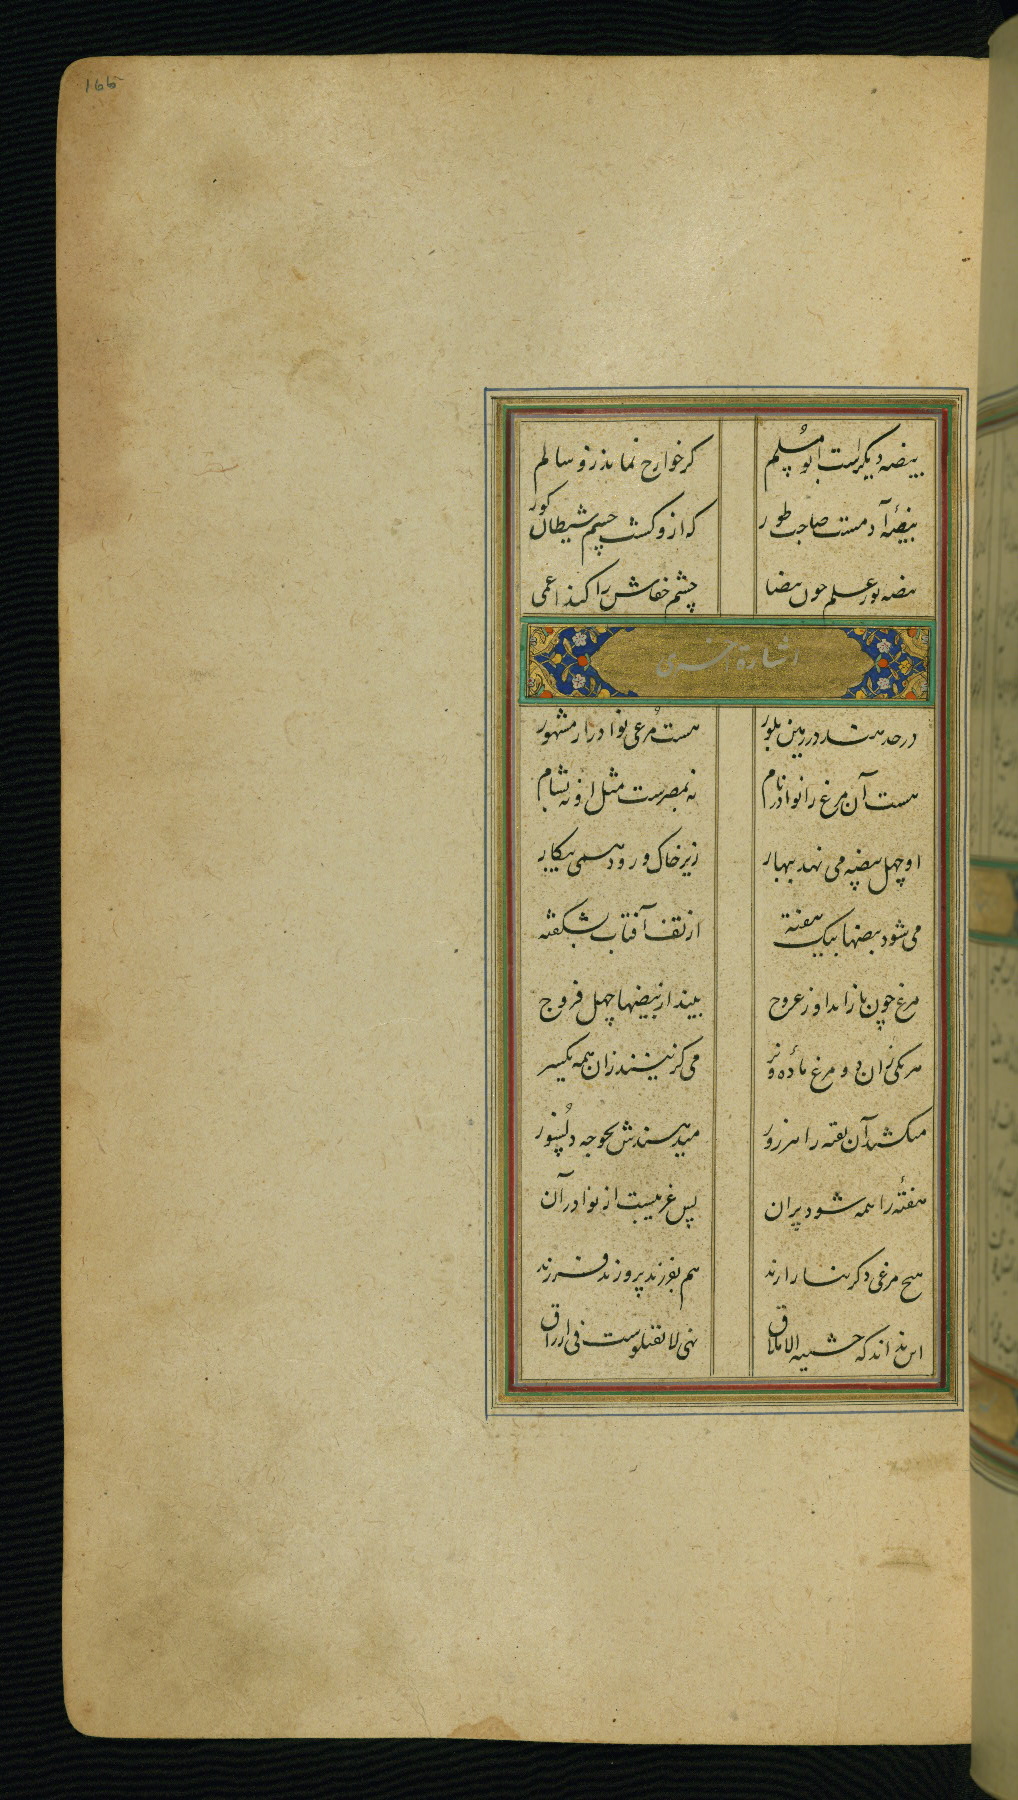 166
بیضه دیکرست ابو مسلم کز خوارج نماند زو سالم
بیضهٔ آدمست صاحب طور که ازو کشت چشم شیطان کور
بیضه نور علم چون بیضا چشم خفاش را کند اعمی
اشارة اخری
در حد هند در زمین بلور هست مرغی نوادر ار مشهور
هست آن مرغ را نوادر نام نه بمصرست مثل او نه بشام
او چهل بیضه می نهد ببهار زیر خاک و رود همی بیکار
می شود بیضها بیک هفته از تف آفتاب بشکفته
مرغ چون باز آید او ز عروج بیند از بیضها چهل فروج
هر یکی زان دو مرغ ماده و نر می کزینند زان همه یکسر
میکشد آن بقیه را بمزور میدهندش بجوجه دلسوز
هفتهٔ را همه شود پران پس غریبست از نوادر آن
هیچ مرغی دکر بنا دارند هم بفرزند پرورند فرزند
این نداند که خشیه الاملاق نهی لا تقتلوست فی ارزاق